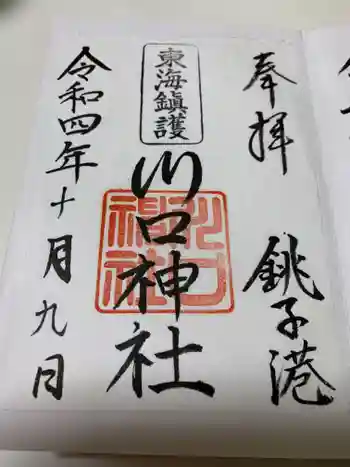 奉拝
銚子港
東海鎮護
川口神社
川口
神社
令和四年十月九日